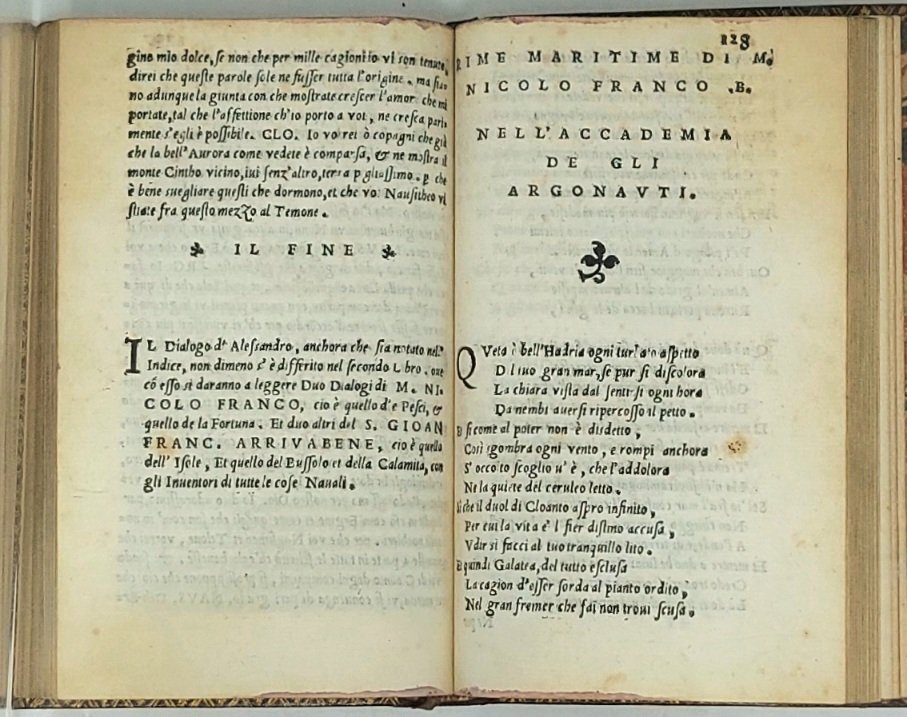 gino mio dolce, se non che per mille cagioni io vi son tenuto,
direi che queste parole sole ne fusser tutta l'origine. ma sia
no adunque la giunta con che mostrate crescer l'amor che mi
portate, tal che l'affettione ch'io porto a voi, ne cresca pari
mente s'egli è possibile. CLO. Io vorrei ò copagni che già
che la bell'Aurora come vedete è comparsa, & ne mostra il
monte Cintho vicino, iui senz'altro, terra pigliassimo. p che
è bene suegliare questi che dormono, et che voi Nausitheo vi
stiate fra questo mezzo al Temone.
IL FINE
IL Dialogo d'Alessandro, anchora che sia notato nell'
Indice, non dimeno s'è differito nel secondo Libro. oue
cō esso si daranno a leggere Duo Dialogi di M. NI
COLO FRANCO, cio è quello d'e Pesci, &
quello de la Fortuna. Et duo altri del S. GIOAN
FRANC. ARRIVABENE, cio è quello
dell'Isole, Et quello del Bussolo et della Calamita, con
gli Inuentori di tutte le cose Nauali.
128
RIME MARITIME DI M.
NICOLO FRANCO .B.
NELL'ACCADEMIA
DE GLI
ARGONAVTI.
QVeta è bell'Hadria ogni turbato aspetto
D'l tuo gran mar, se pur si discolora
La chiara vista dal sentirsi ogni hora
Da nembi auersi ripercosso il petto.
E si come al poter non è disdetto,
Così sgombra ogni vento, e rompi anchora
S'occolto scoglio u'è, che l'addolora
Ne la quiete del ceruleo letto.
Si che il duol di Cloanto aspro infinito,
Per cui la vita e'l fier distino accusa,
Vdir si facci al tuo tranquillo lito.
E quindi Galatea, del tutto esclusa
La cagion d'esser sorda al pianto ordito,
Nel gran fremer che fai non troui scusa.